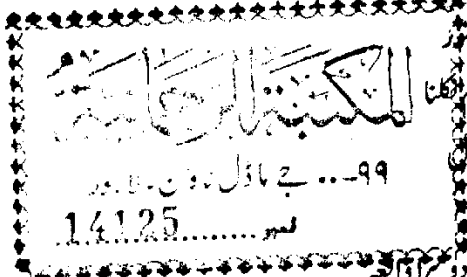 المکتبۃ الرحمانیۃ
۹۹... جے ماڈل ٹاؤن۔ لاہور
نمبر ....14125.......